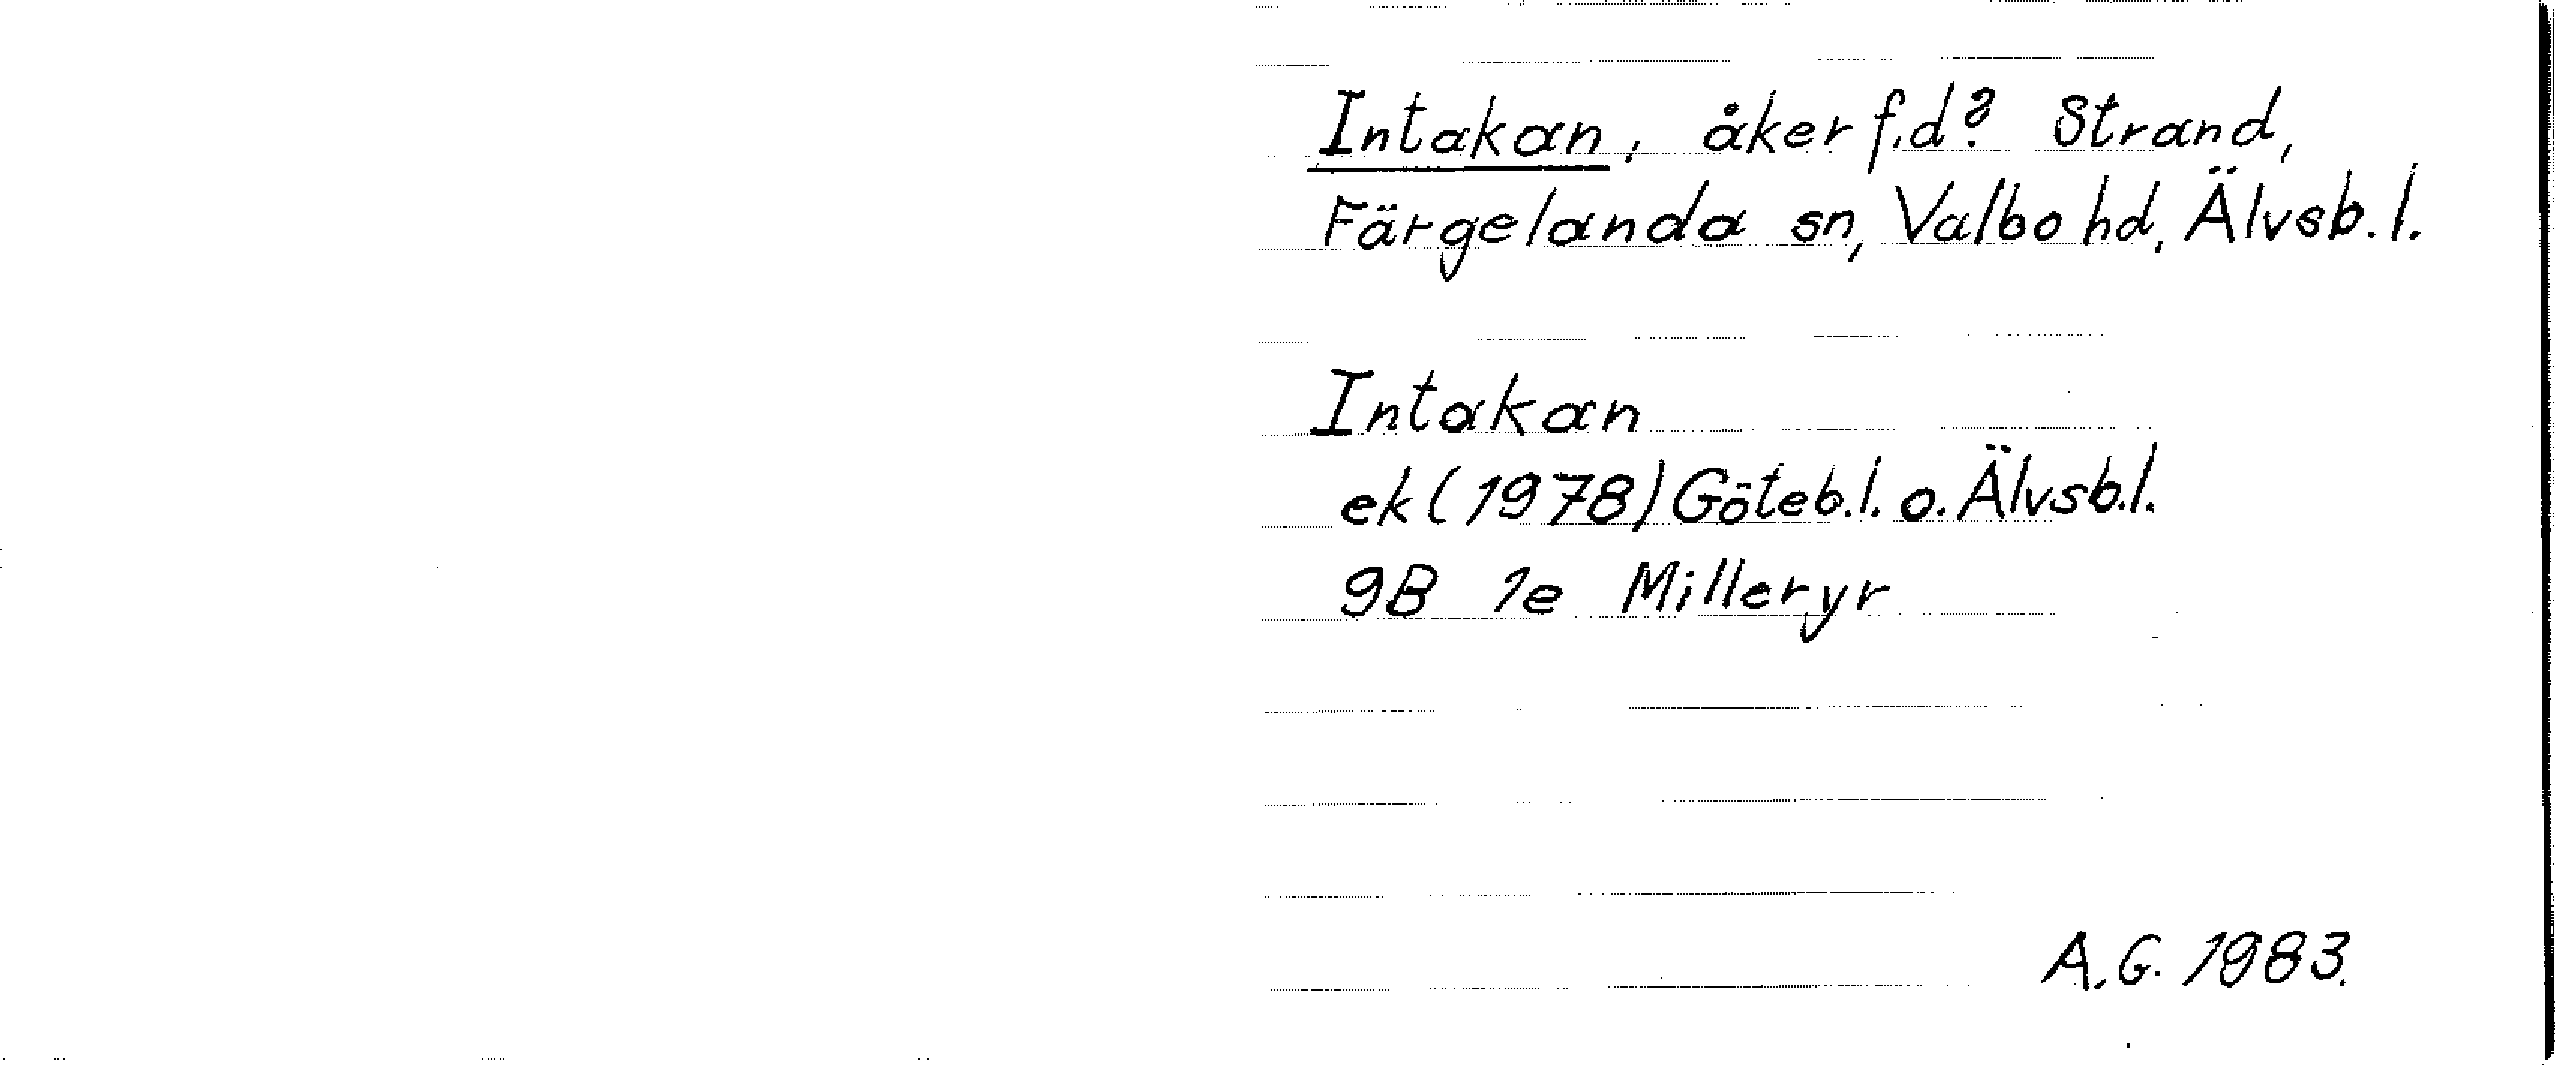 Intakan, åker f.d? Strand,
Färgelanda sn, Valbo hd, Älvsb.l.
Intakan
ek (1978) Göteb.l. o. Älvsb.l.
9B 1e Milleryr
A.G. 1983.